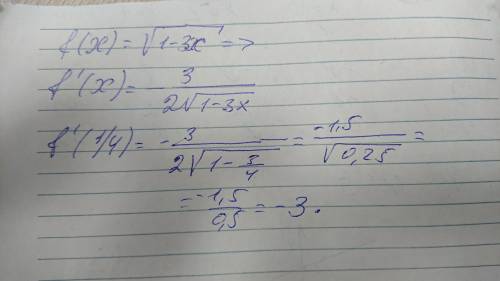 f(x) = √1-3x =>
f'(x) = 3 / 2√1-3x
f'(1/4) = - 3 / 2√1-3/4 = -1,5 / √0,25 =
= -1,5 / 0,5 = -3.